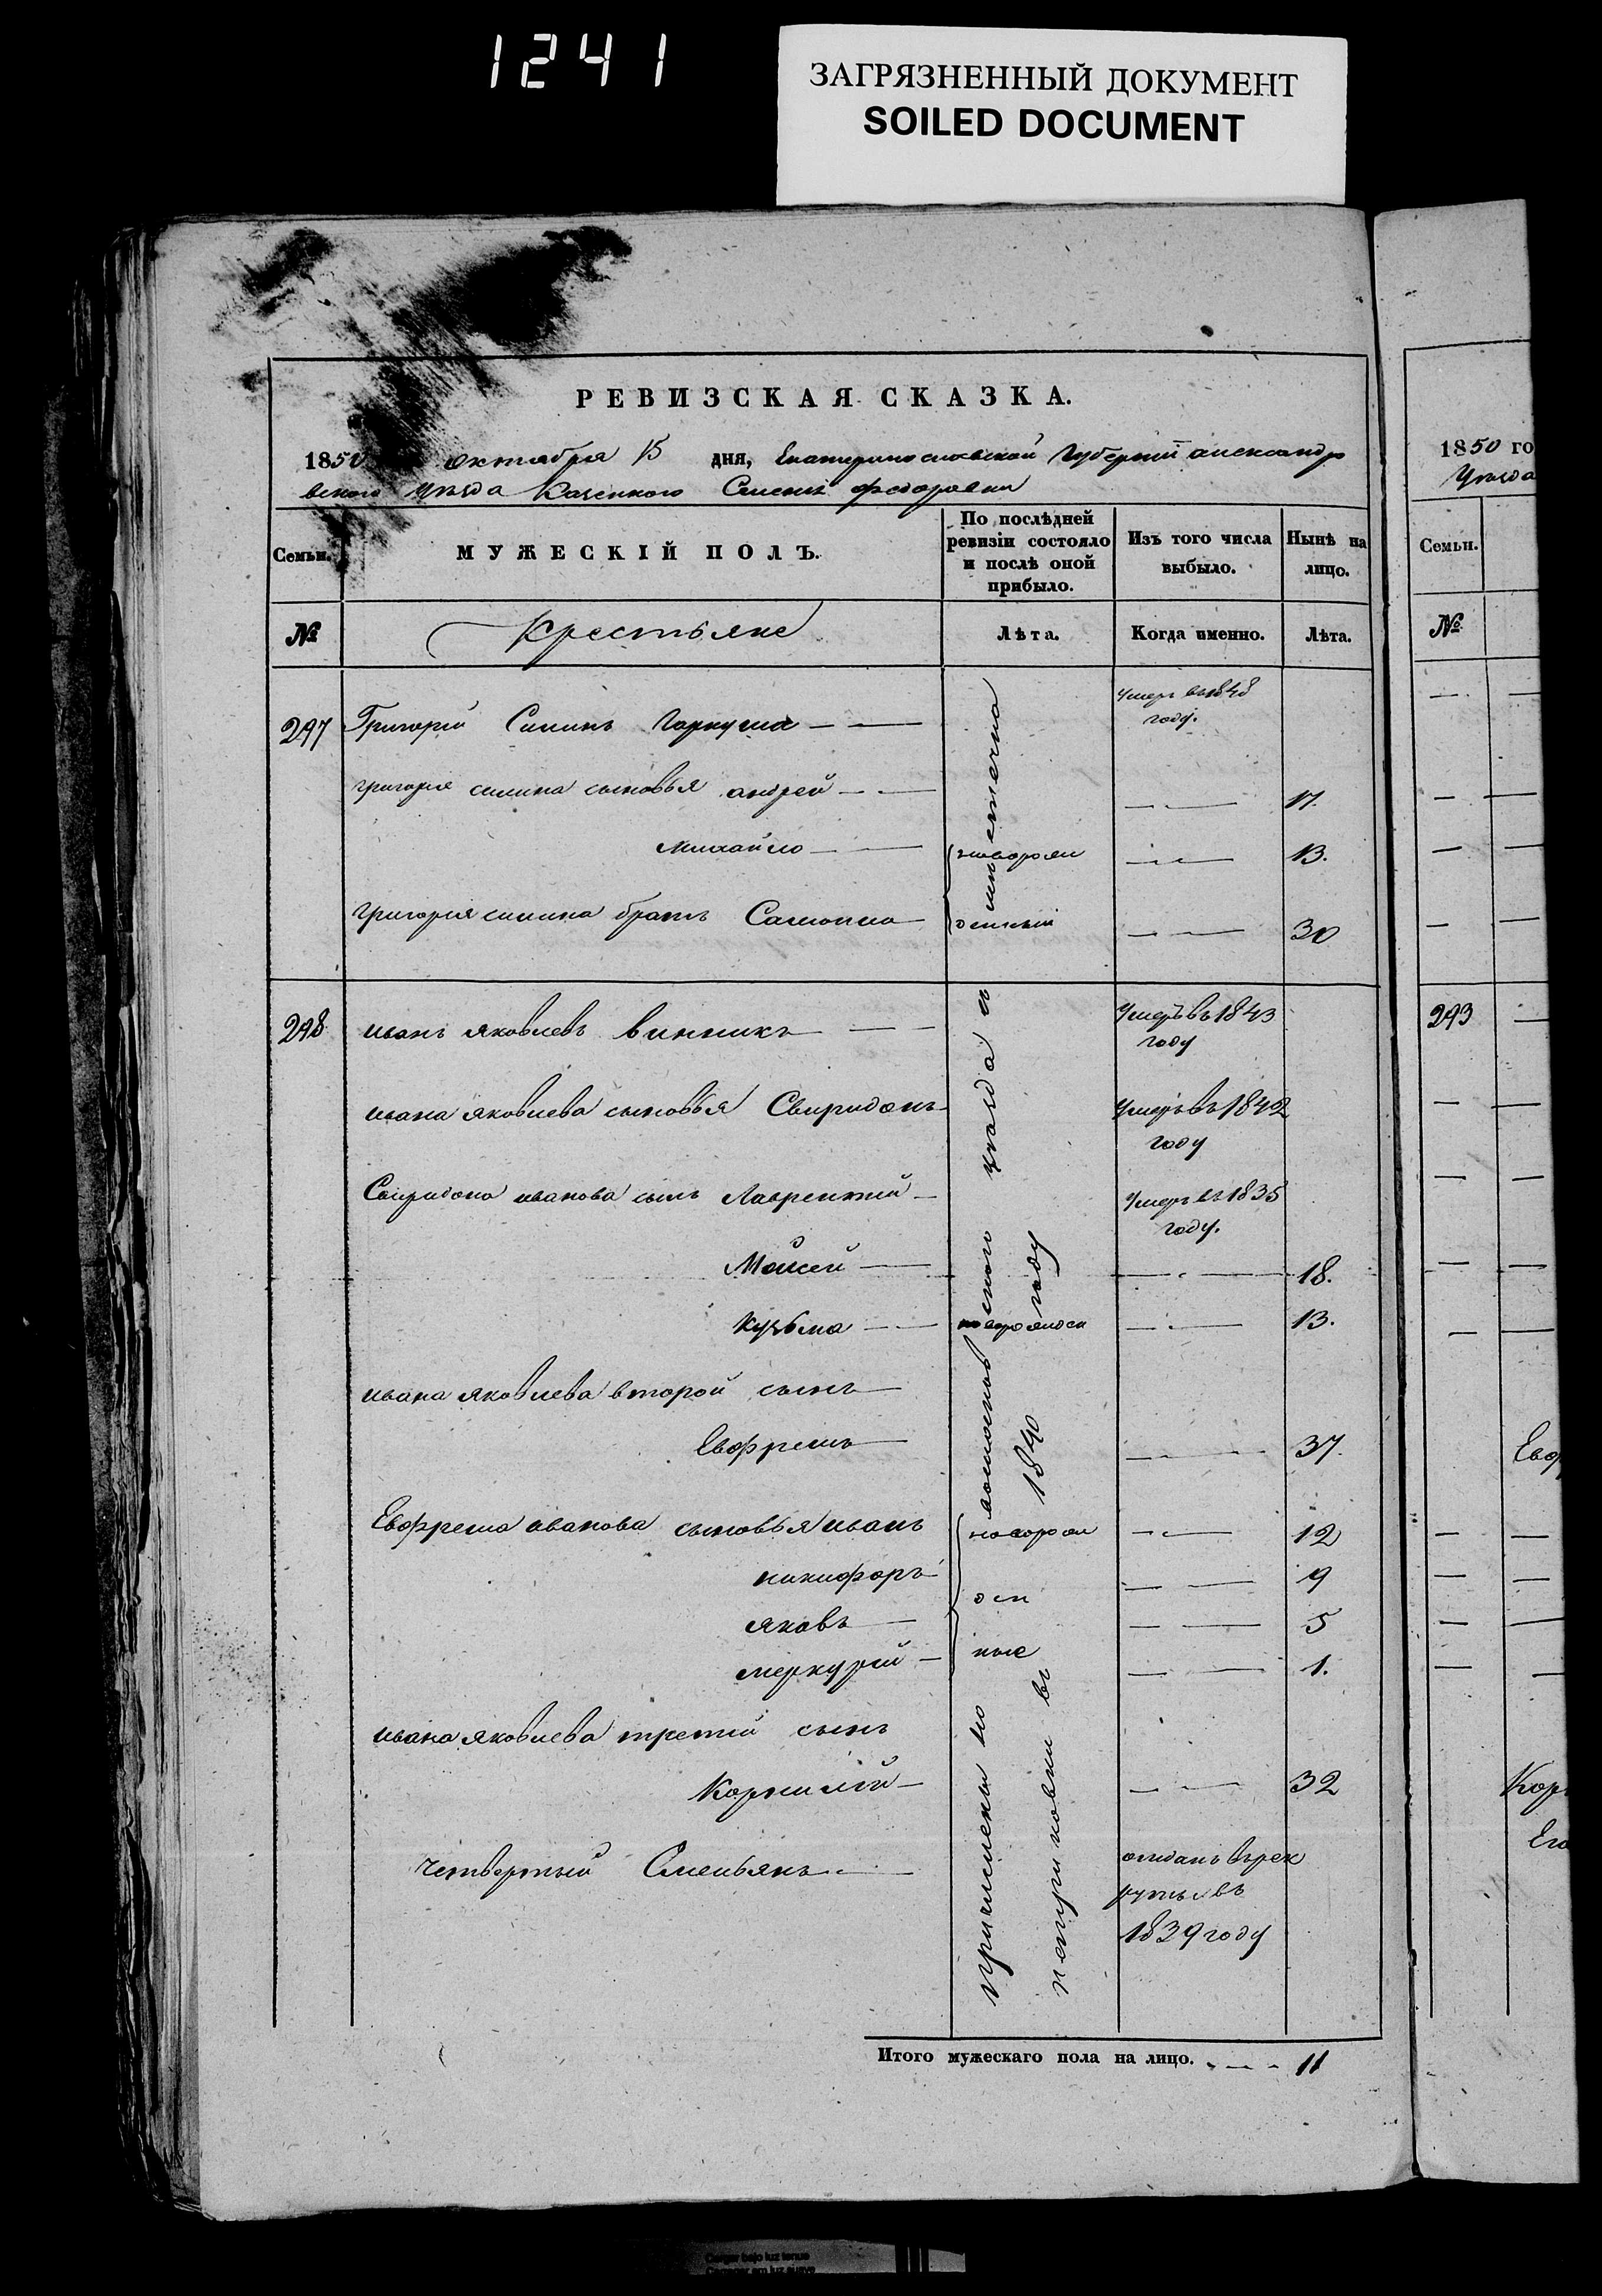 1241
ЗАГРЯЗНЕННЫЙ ДОКУМЕНТ
SOILED DOCUMENT
РЕВИЗСКАЯ СКАЗКА.
1850 октября 15 дня, Екатеринославской Губернии александро
вского уѣзда Казенного Селенія федоровки
Семьи.
МУЖЕСКІЙ ПОЛЪ.
По послѣдней ревизіи состояло и послѣ оной прибыло.
Изъ того числа выбыло.
Нынѣ на лицо.
№
Крестьяне
Лѣта.
Когда именно.
Лѣта.
297 Григорій Силинъ Гаркуша — — умеръ въ 1848
году.
григорія силина сыновья андрей — — 17.
михайло — — новорож — — 13.
григорія силина братъ Самойло денный — — 30
298 иванъ яковлевъ винникъ — — Умеръ въ 1843
году
ивана яковлева сыновья Свиридонъ Умеръ въ 1842
году
Свиридона иванова сынъ Лаврентій — Умеръ въ 1835
году.
Мойсей — — 18.
Кузьма — — — 13.
ивана яковлева второй сынъ
Евфремъ — — 37.
Евфрема иванова сыновья иванъ новорож — — 12
никифоръ ден — — 9
яковъ — — — 5
меркурій — ные — — 1.
ивана яковлева третий сынъ
Корнилій — — — 32
четвертый Емельянъ — отданъ въ рек
руты въ
1839 году
причислены из
уѣзда и
въ
1840
году
Итого мужескаго пола на лицо. — — 11
1850 го
Уѣзда
Семьи.
№
293
Евф
Кор
Его